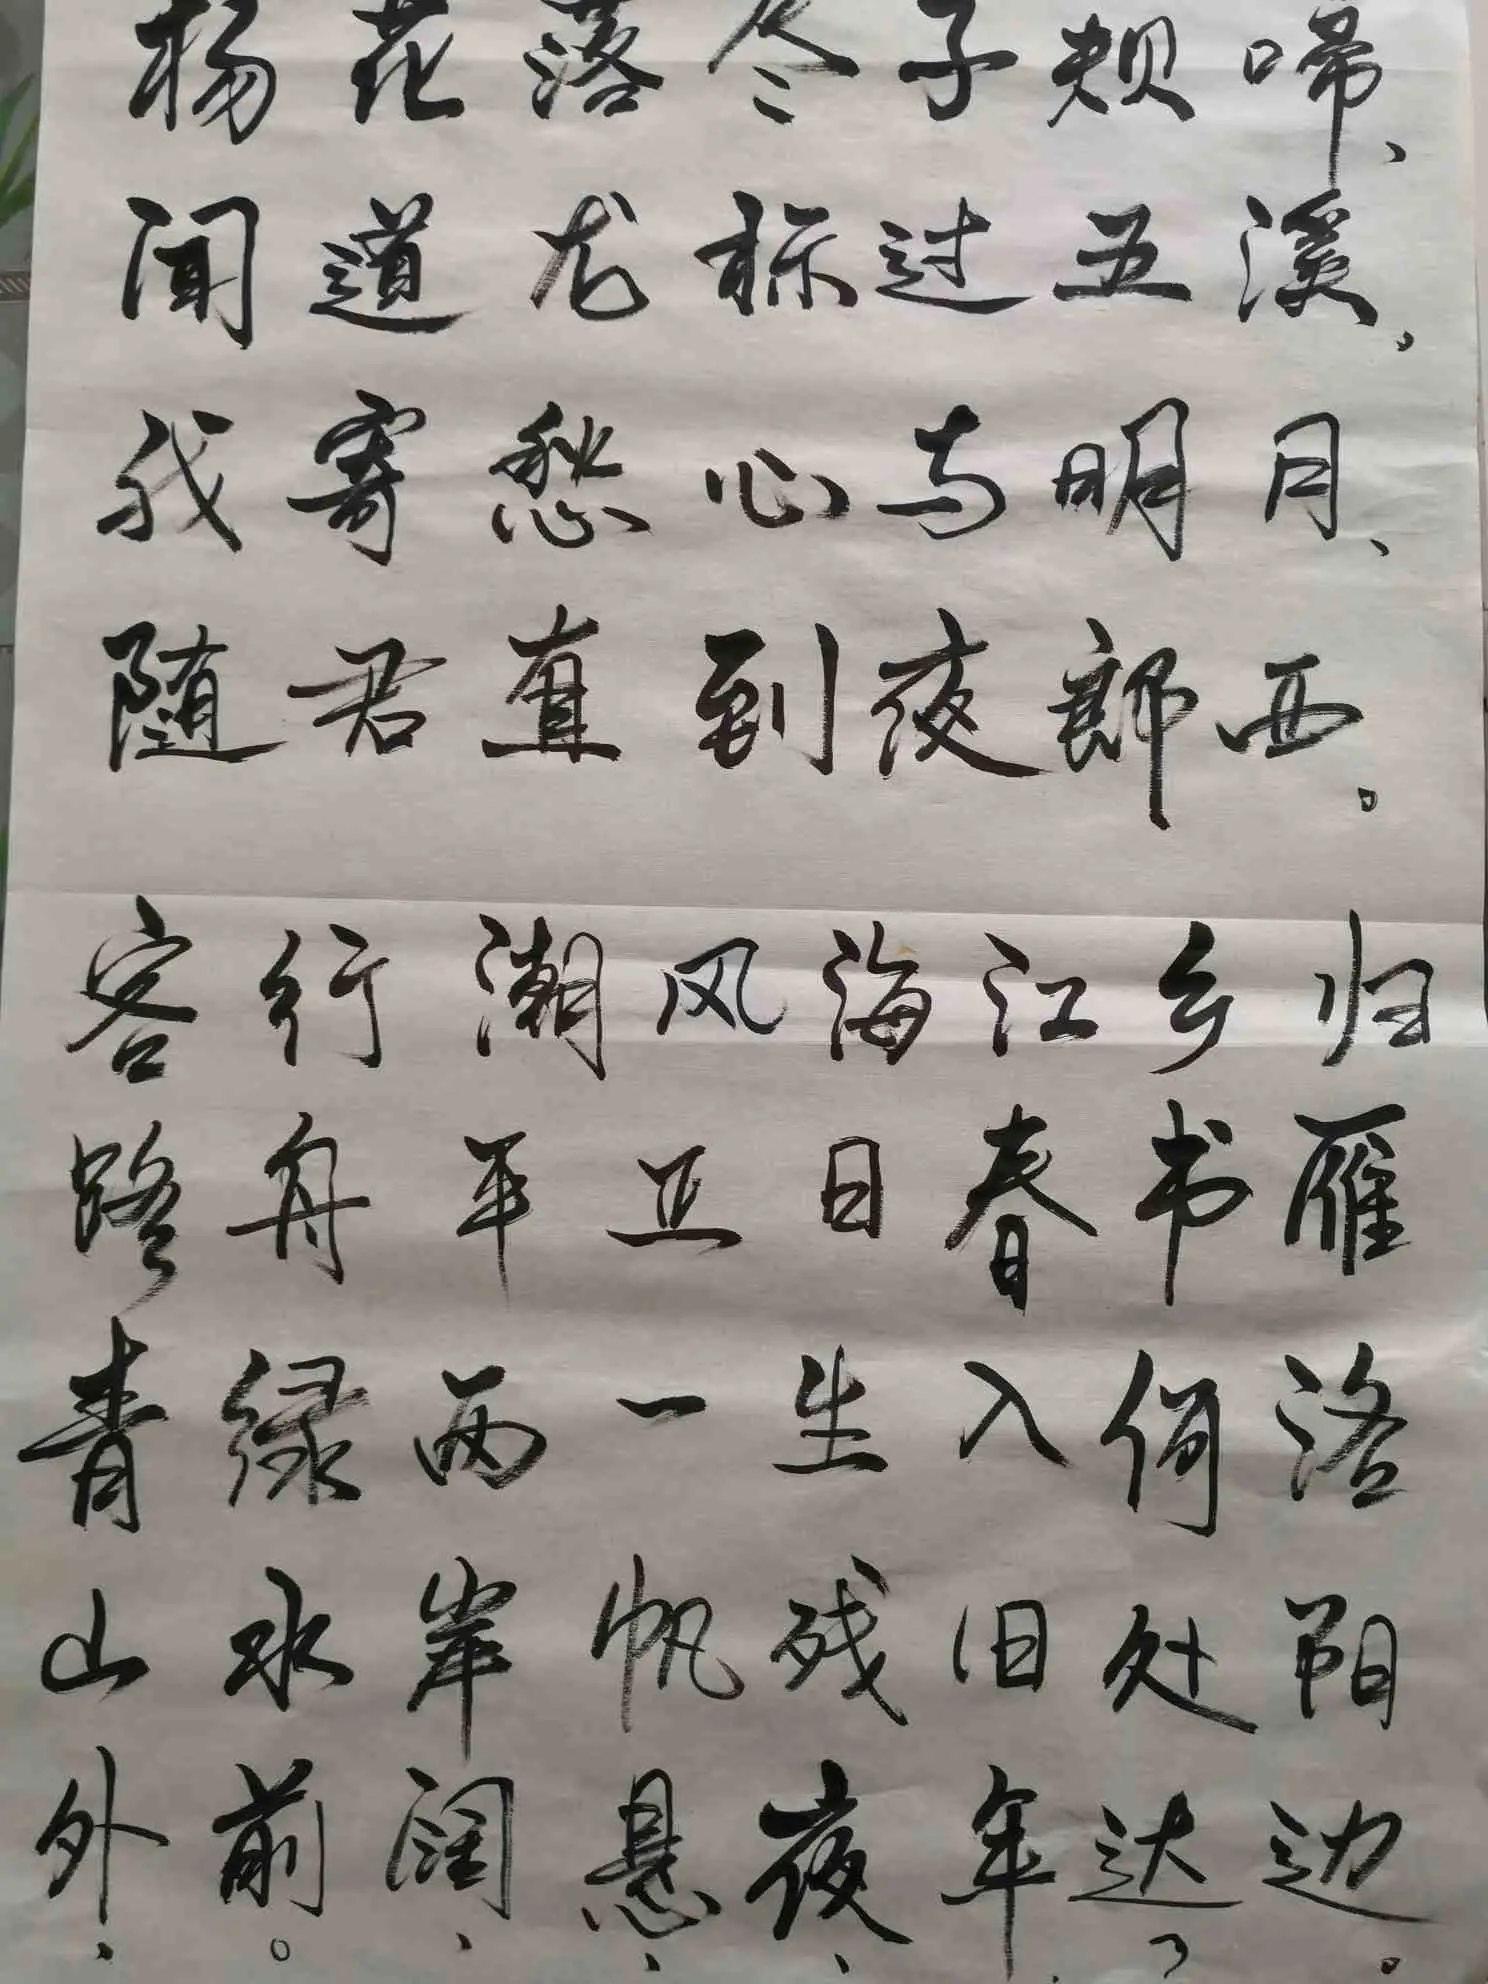 杨花落尽子规啼、
闻道龙标过五溪。
我寄愁心与明月、
随君直到夜郎西。
客路青山外、
行舟绿水前。
潮平两岸阔、
风正一帆悬、
海日生残夜、
江春入旧年.
乡书何处达？
归雁洛阳边。